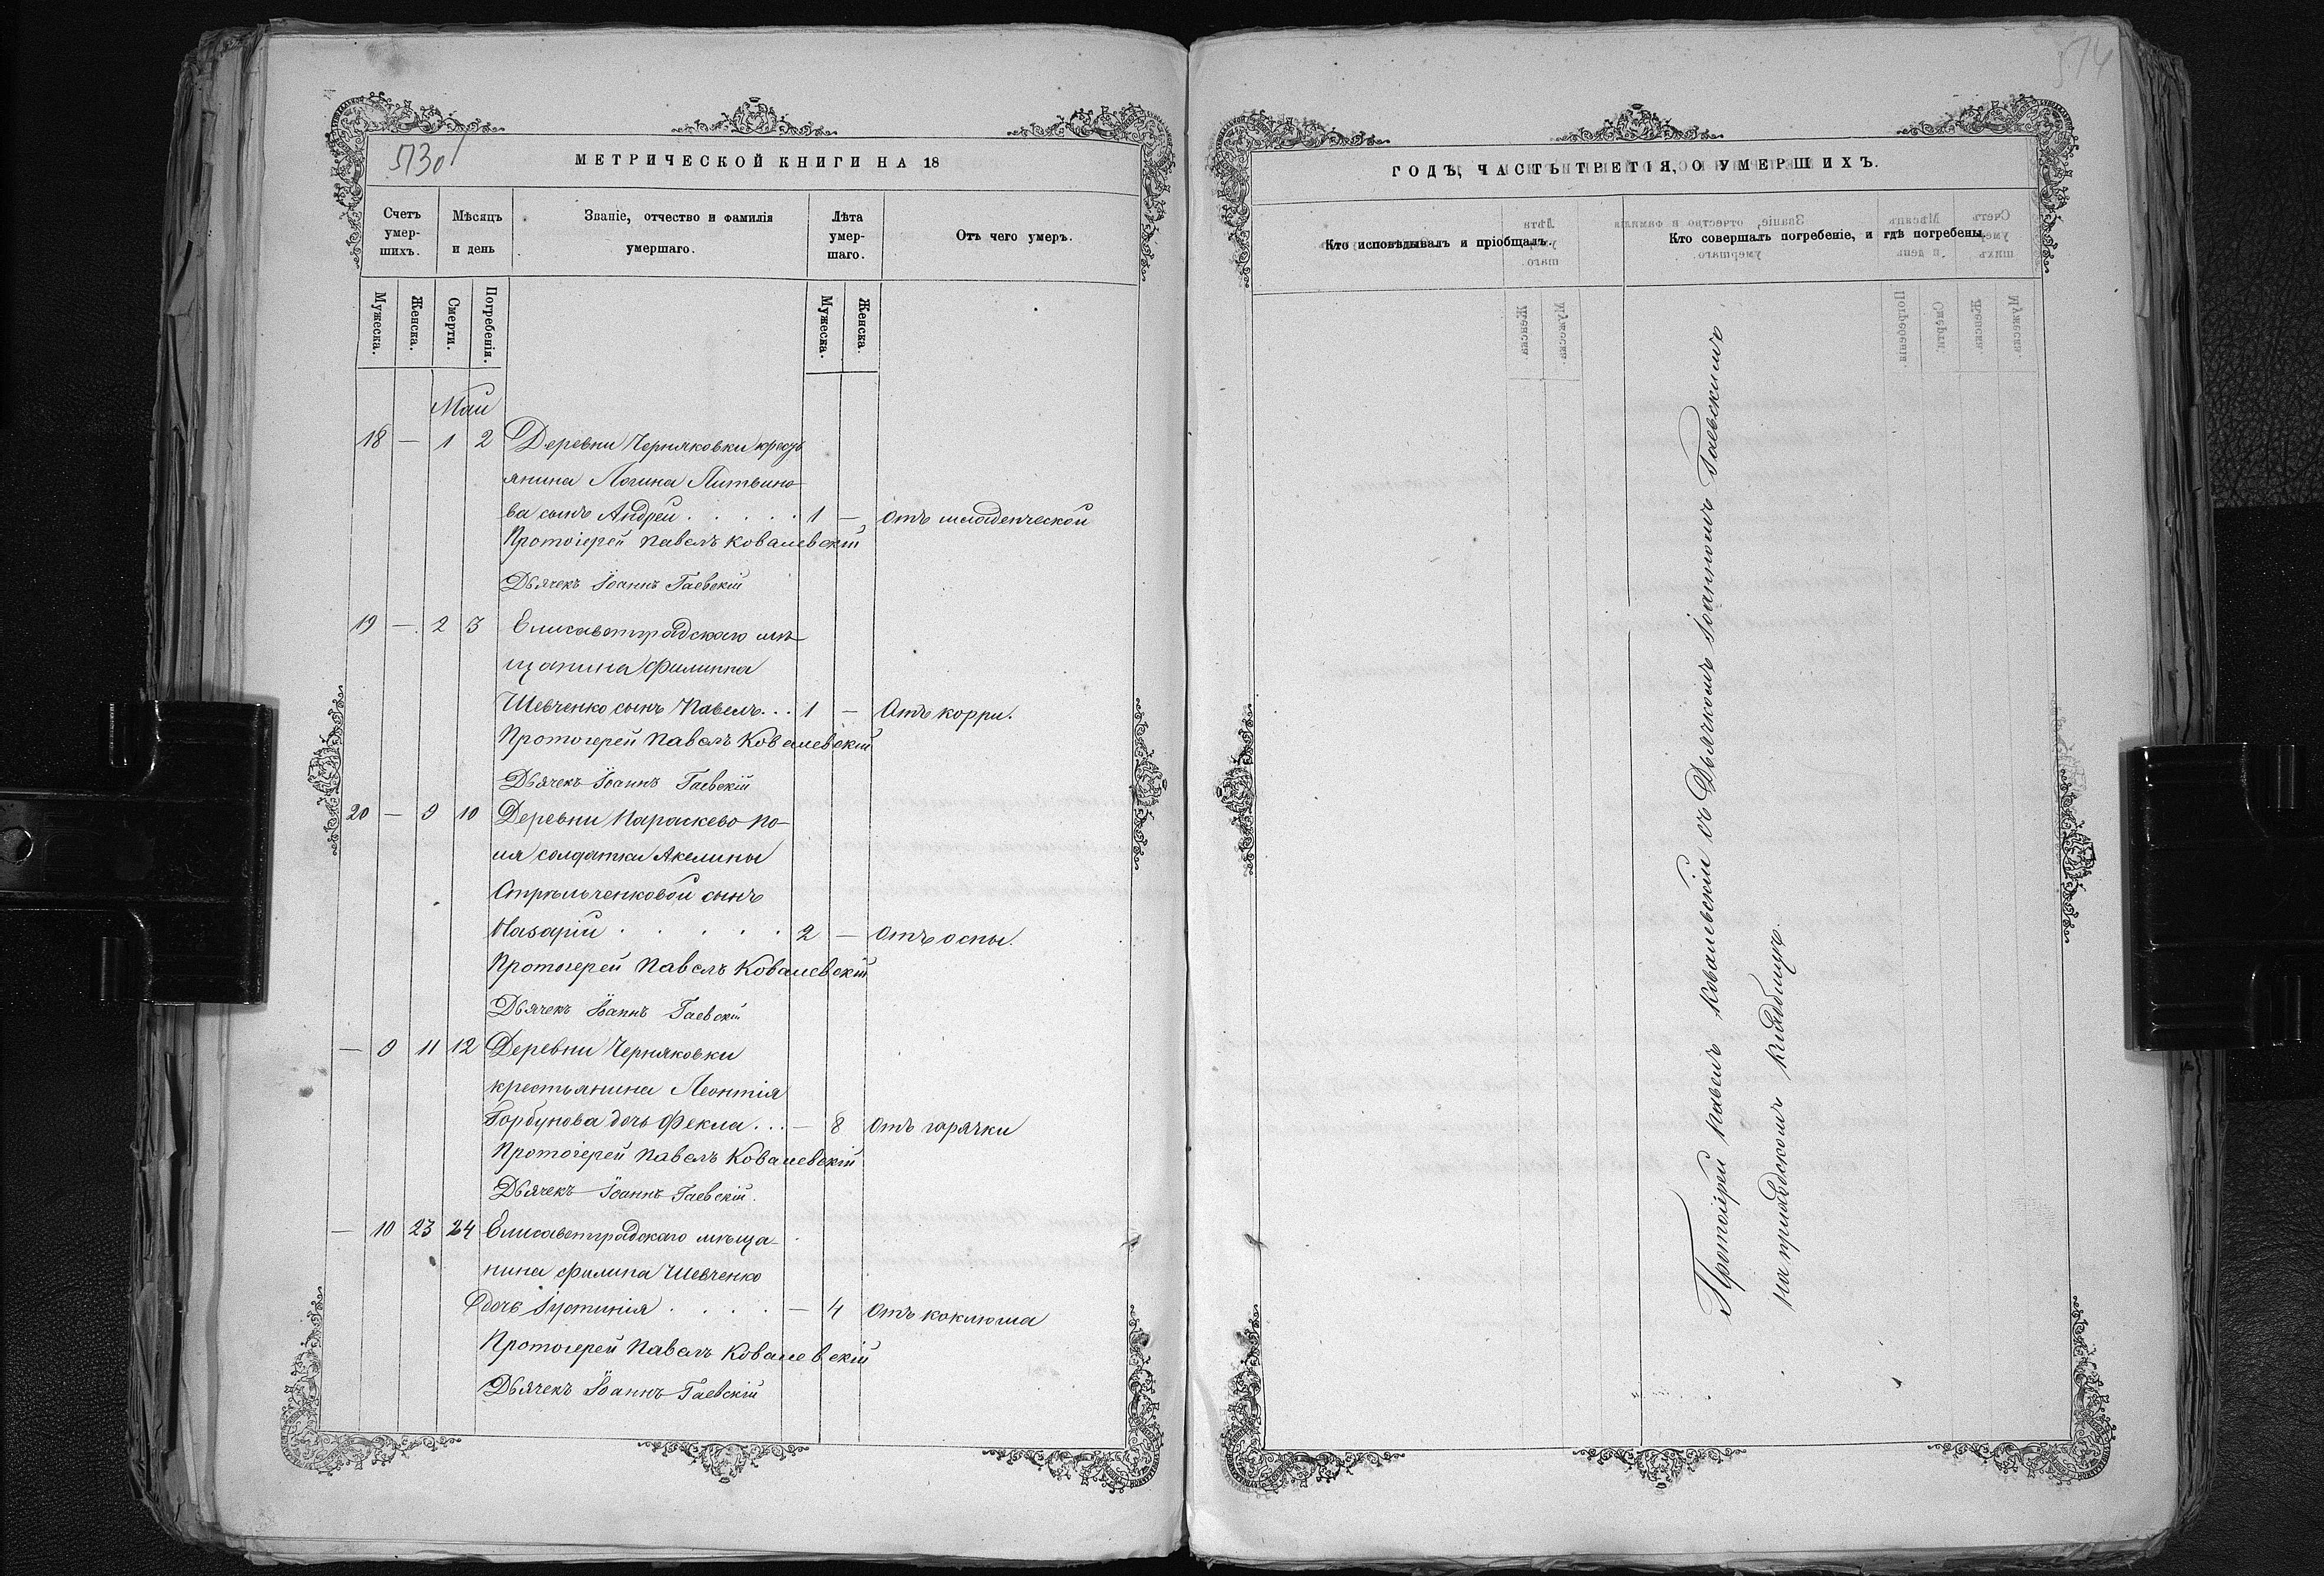 574
5730
МЕТРИЧЕСКОЙ КНИГИ НА 18
ГОДЪ, ЧАСТЬ ТРЕТІЯ, О УМЕРШИХЪ.
Счетъ умер-шихъ.
Мѣсяцъ и день
Званіе, отчество и фамилія умершаго.
Лѣта умер-шаго.
Отъ чего умеръ.
Кто исповѣдывалъ и пріобщалъ.
Кто совершалъ погребеніе, и гдѣ погребены.
Мужеска.
Женска.
Смерти.
Погребенія.
Мужеска.
Женска.
Май
18 — 1 2 Деревни Черняковки кресть
янина Логина Литвино-
ва сынъ Андрей . . . . . 1 — Отъ младенческой
Протоіерей Павелъ Ковалевскій
Дьячекъ Іоаннъ Гаевскій
19 — 2 3 Елисаветградскаго мѣ-
щанина Филиппа
Шевченко сынъ Павелъ . . . 1 — Отъ корри.
Протоіерей Павелъ Ковалевскій
Дьячекъ Іоаннъ Гаевскій
20 — 9 10 Деревни Параскево-по-
ля солдатки Акелины
Стрѣльченковой сынъ
Назарій . . . . . 2 — Отъ оспы.
Протоіерей Павелъ Ковалевскій
Дьячекъ Іоаннъ Гаевскій
— 9 11 12 Деревни Черняковки
крестьянина Леонтія
Горбунова дочь Фекла . . . — 8 Отъ горячки
Протоіерей Павелъ Ковалевскій
Дьячекъ Іоаннъ Гаевскій.
— 10 23 24 Елисаветградскаго мѣща-
нина Филипа Шевченко
дочь Іустинія . . . . — 4 Отъ коклюша
Протоіерей Павелъ Ковалевскій
Дьячекъ Іоаннъ Гаевскій
Протоіерей Павелъ Ковалевскій съ Дьячкомъ Іоанномъ Гаевскимъ
на приходскомъ кладбищѣ.